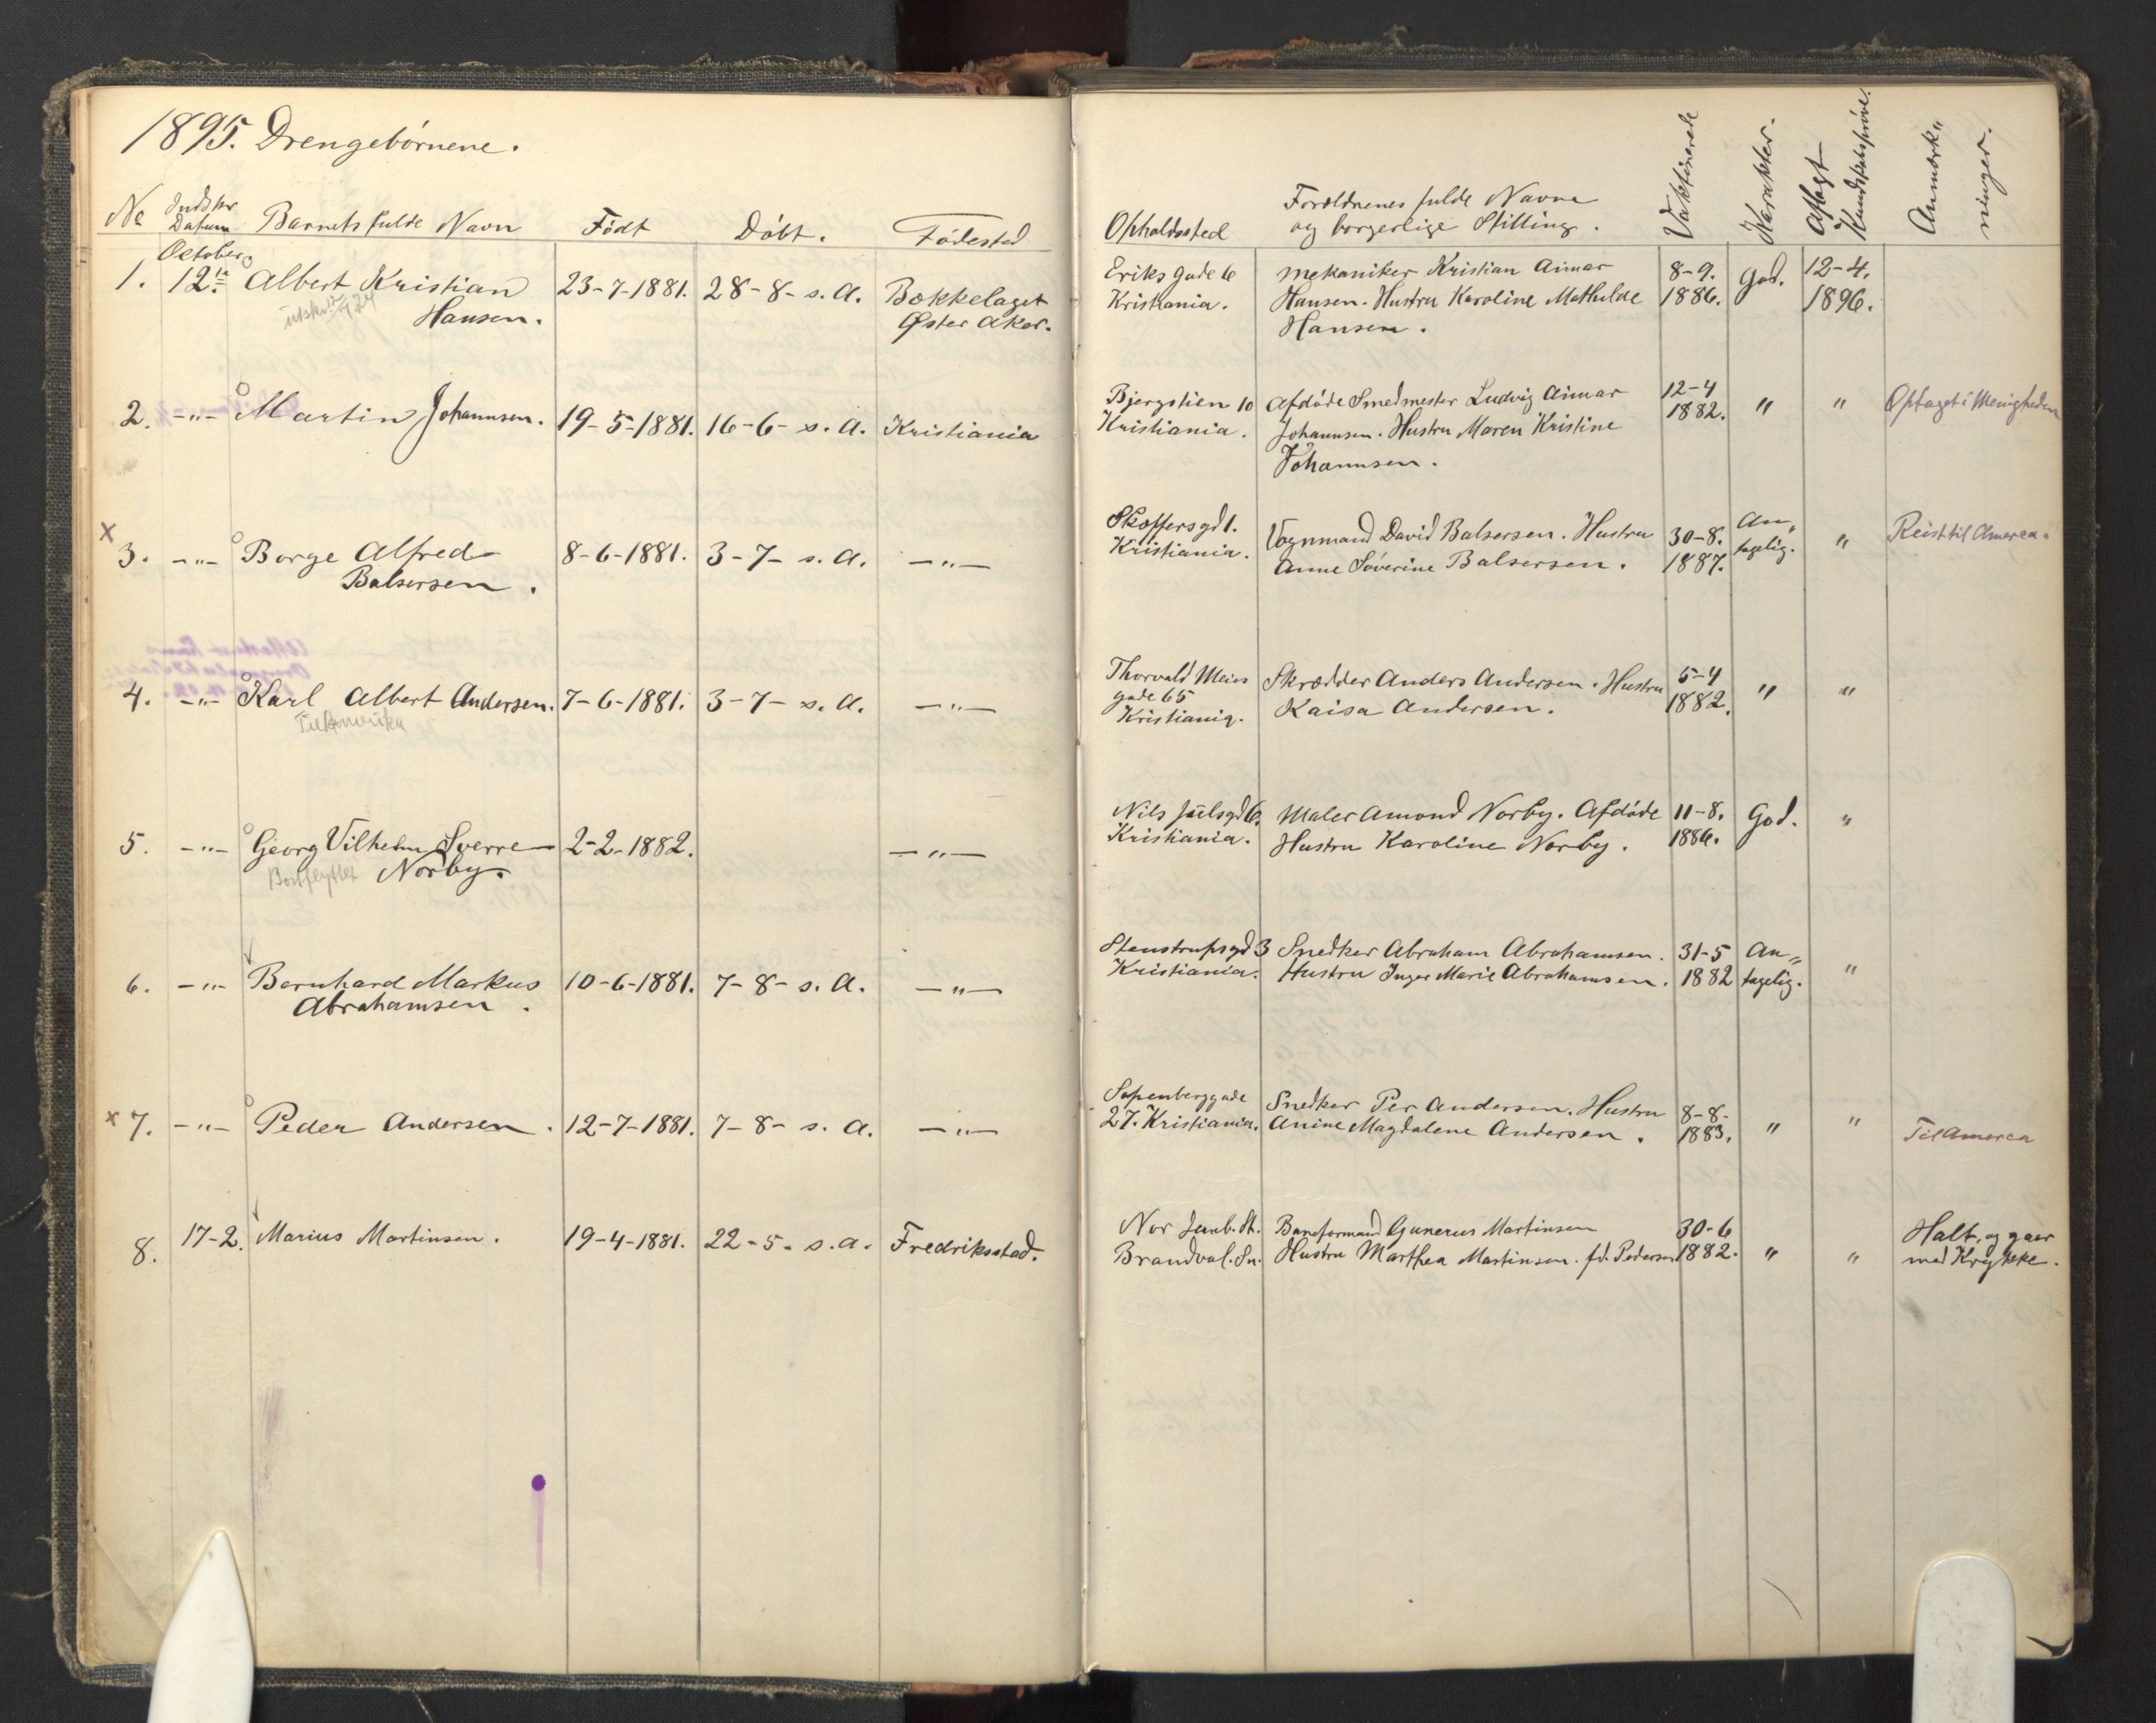 1895. Drengebørnene.
No Indskr. Datum Barnets fulde Navn Født Døbt. Fødested
October
1. 12te Albert Kristian 23-7-1881. 28-8-s.A. Bækkelaget
Hansen. Øster Aker.
2. -"- Martin Johannsen. 19-5-1881. 16-6-s.A. Kristiania
3. -"- Borge Alfred 8-6-1881. 3-7-s.A. -"-
Balsersen.
4. -"- Karl Albert Andersen. 7-6-1881. 3-7-s.A. -"-
5. -"- Georg Vilhelm Sverre 2-2-1882. -"-
Bortflyttet Norby.
6. -"- Bernhard Markus 10-6-1881. 7-8-s.A. -"-
Abrahamsen.
x 7. -"- Peder Andersen. 12-7-1881. 7-8-s.A. -"-
8. 17-2. Marius Martinsen. 19-4-1881. 22-5-s.a. Fredriksstad.
Opholdssted Forældrenes fulde Navne
og borgerlige Stilling. Vaktinerede Karakter. Aflagt Kundskabsprøve. Anmærk„ ninger.
Eriks gade 6 Mekaniker Kristian Aimar 8-9. God. 12-4.
Kristiania. Hansen. Hustru Karoline Mathilde 1886. 1896.
Hansen.
Bjergstien 10 Afdøde Smedmester Ludvig Aimar 12-4 " " Optaget i Menigheden
Kristiania. Johannsen. Hustru Maren Kristine 1882.
Johannsen.
Skoffersgd 1. Vognmand David Balsersen. Hustru 30-8. An„ " Reist til Amerca.
Kristiania. Anne Søverine Balsersen. 1887. tagelig.
Thorvald Meiers Skrædder Anders Andersen. Hustru 5-4 " "
gade 65 Kaisa Andersen. 1882.
Kristiania.
Nils Juelsgd 6. Maler Amond Norby. Afdøde 11-8. God. "
Kristiania. Hustru Karoline Norby. 1886.
Stenstrupsgd 3 Snedker Abraham Abrahamsen. 31-5 An„ "
Kristiania. Hustru Inger Marie Abrahamsen. 1882 tagelig.
Sopenberggade Snedker Per Andersen. Hustru 8-8- " " Til Amerca
27. Kristiania. Anine Magdalene Andersen. 1883.
Nor Jernb. St. Baneformand Gunerus Martinsen 30-6 Halt, og gaar
Brandval. Sn. Hustru Marthea Martinsen. fd. Pedersen 1882. " " med Krykke.